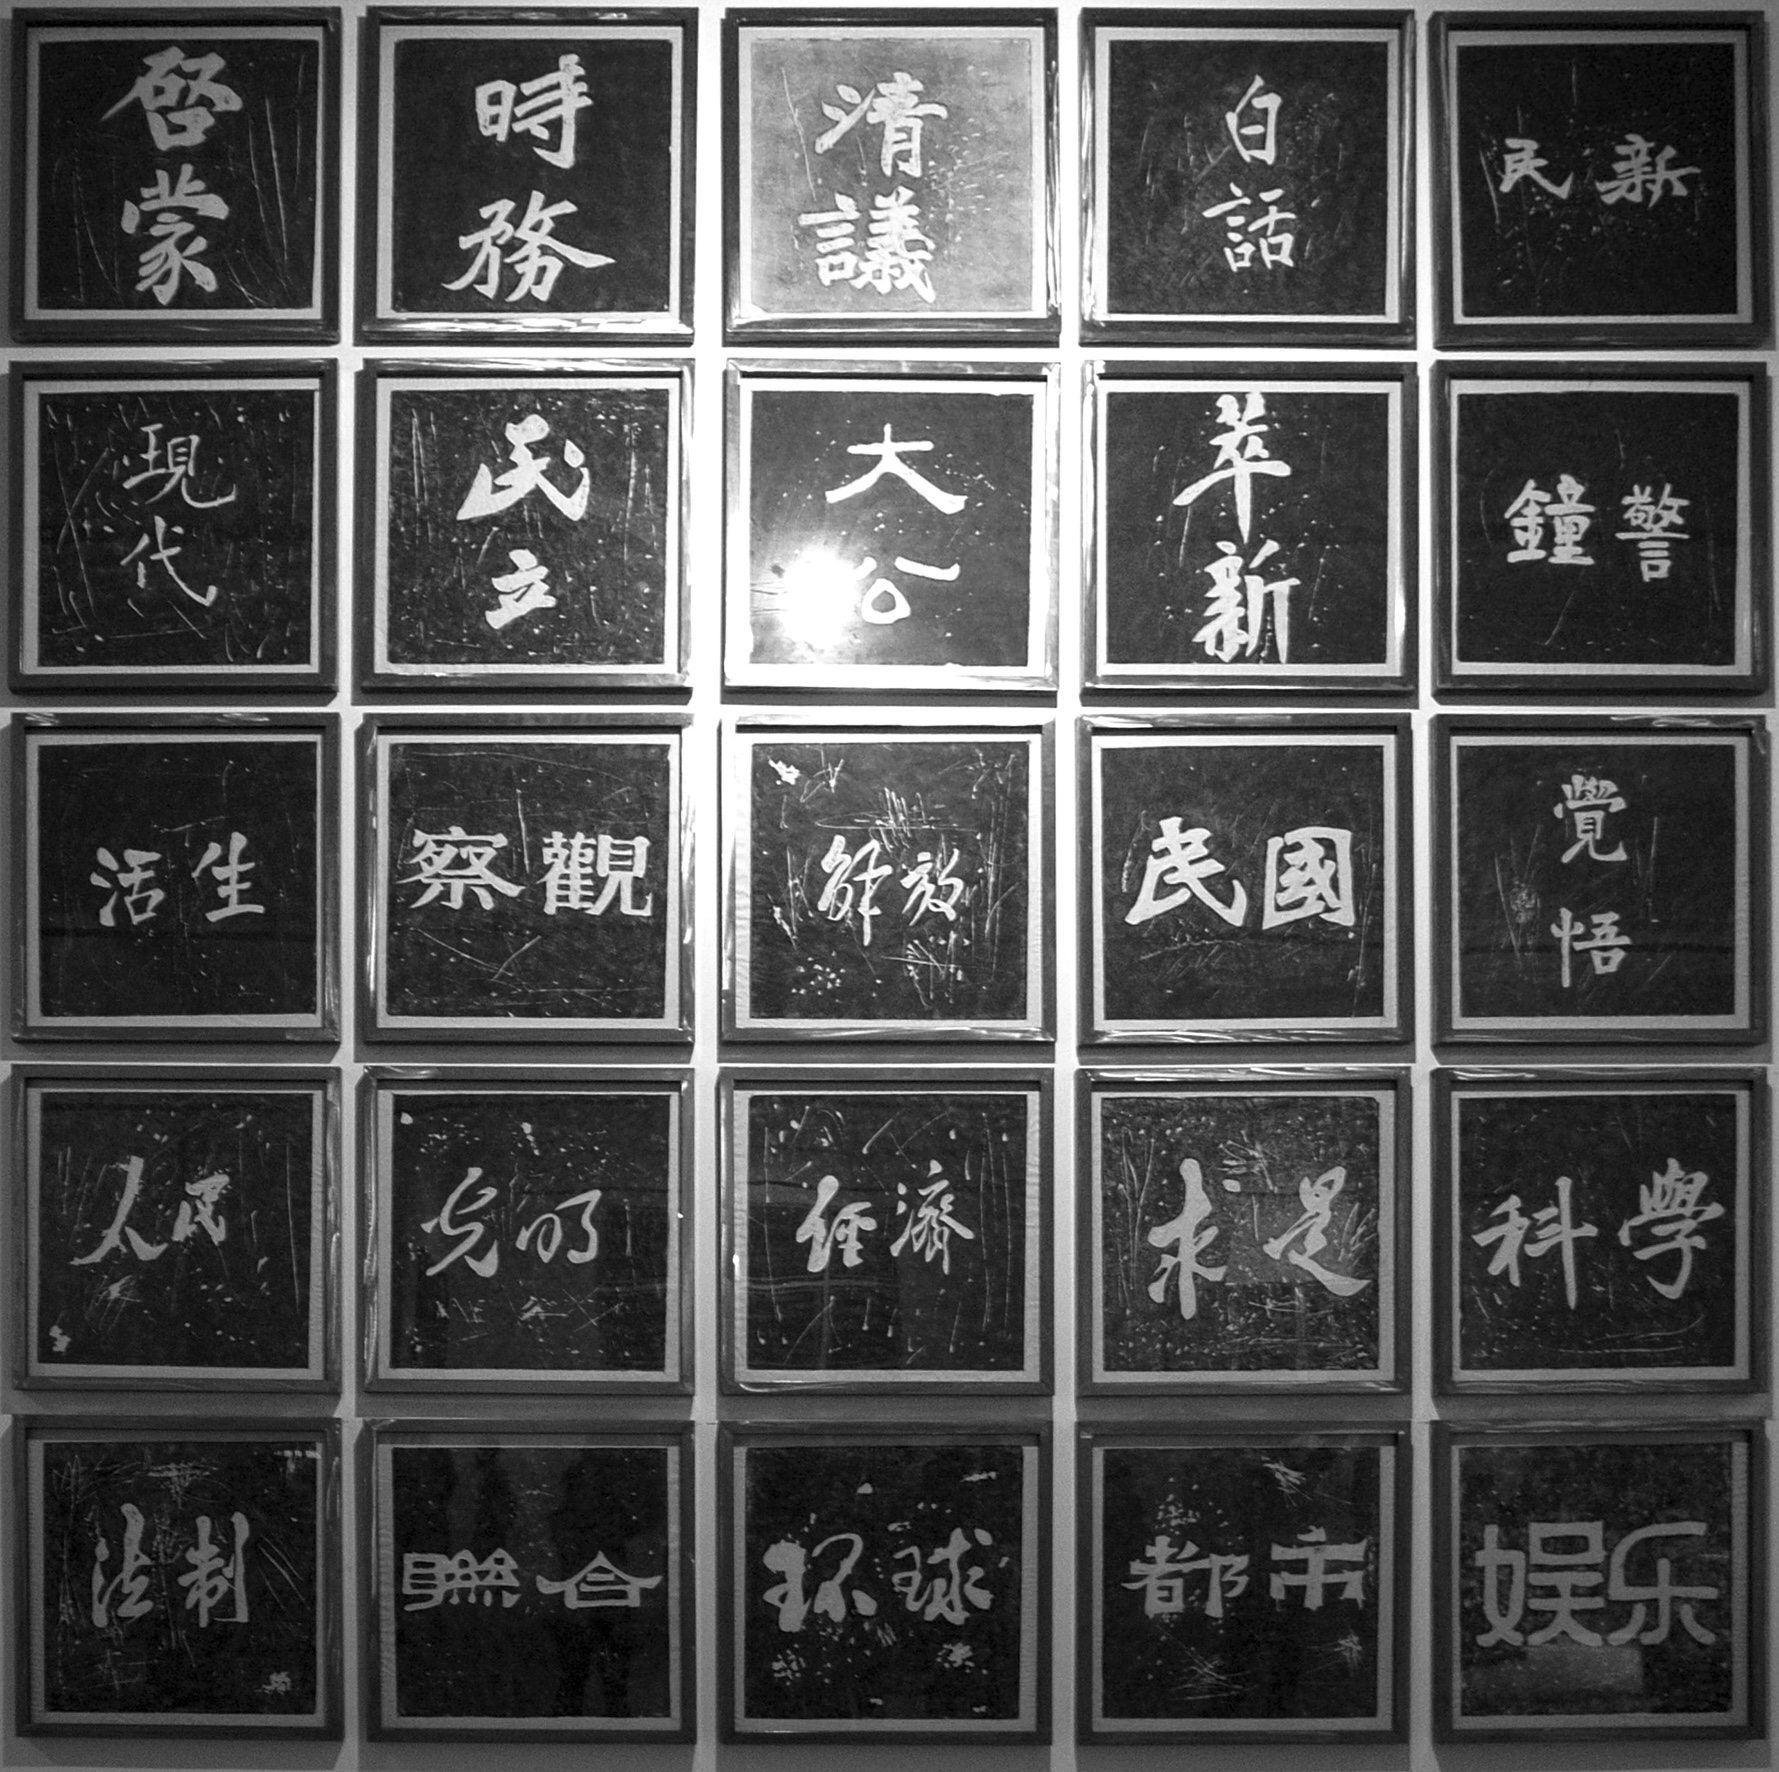 啓蒙
時務
清議
白話
新民
現代
民立
大公
萃新
警鐘
生活
觀察
解放
民國
覺悟
人民
光明
經濟
求是
科學
法制
聯合
环球
都市
娱乐